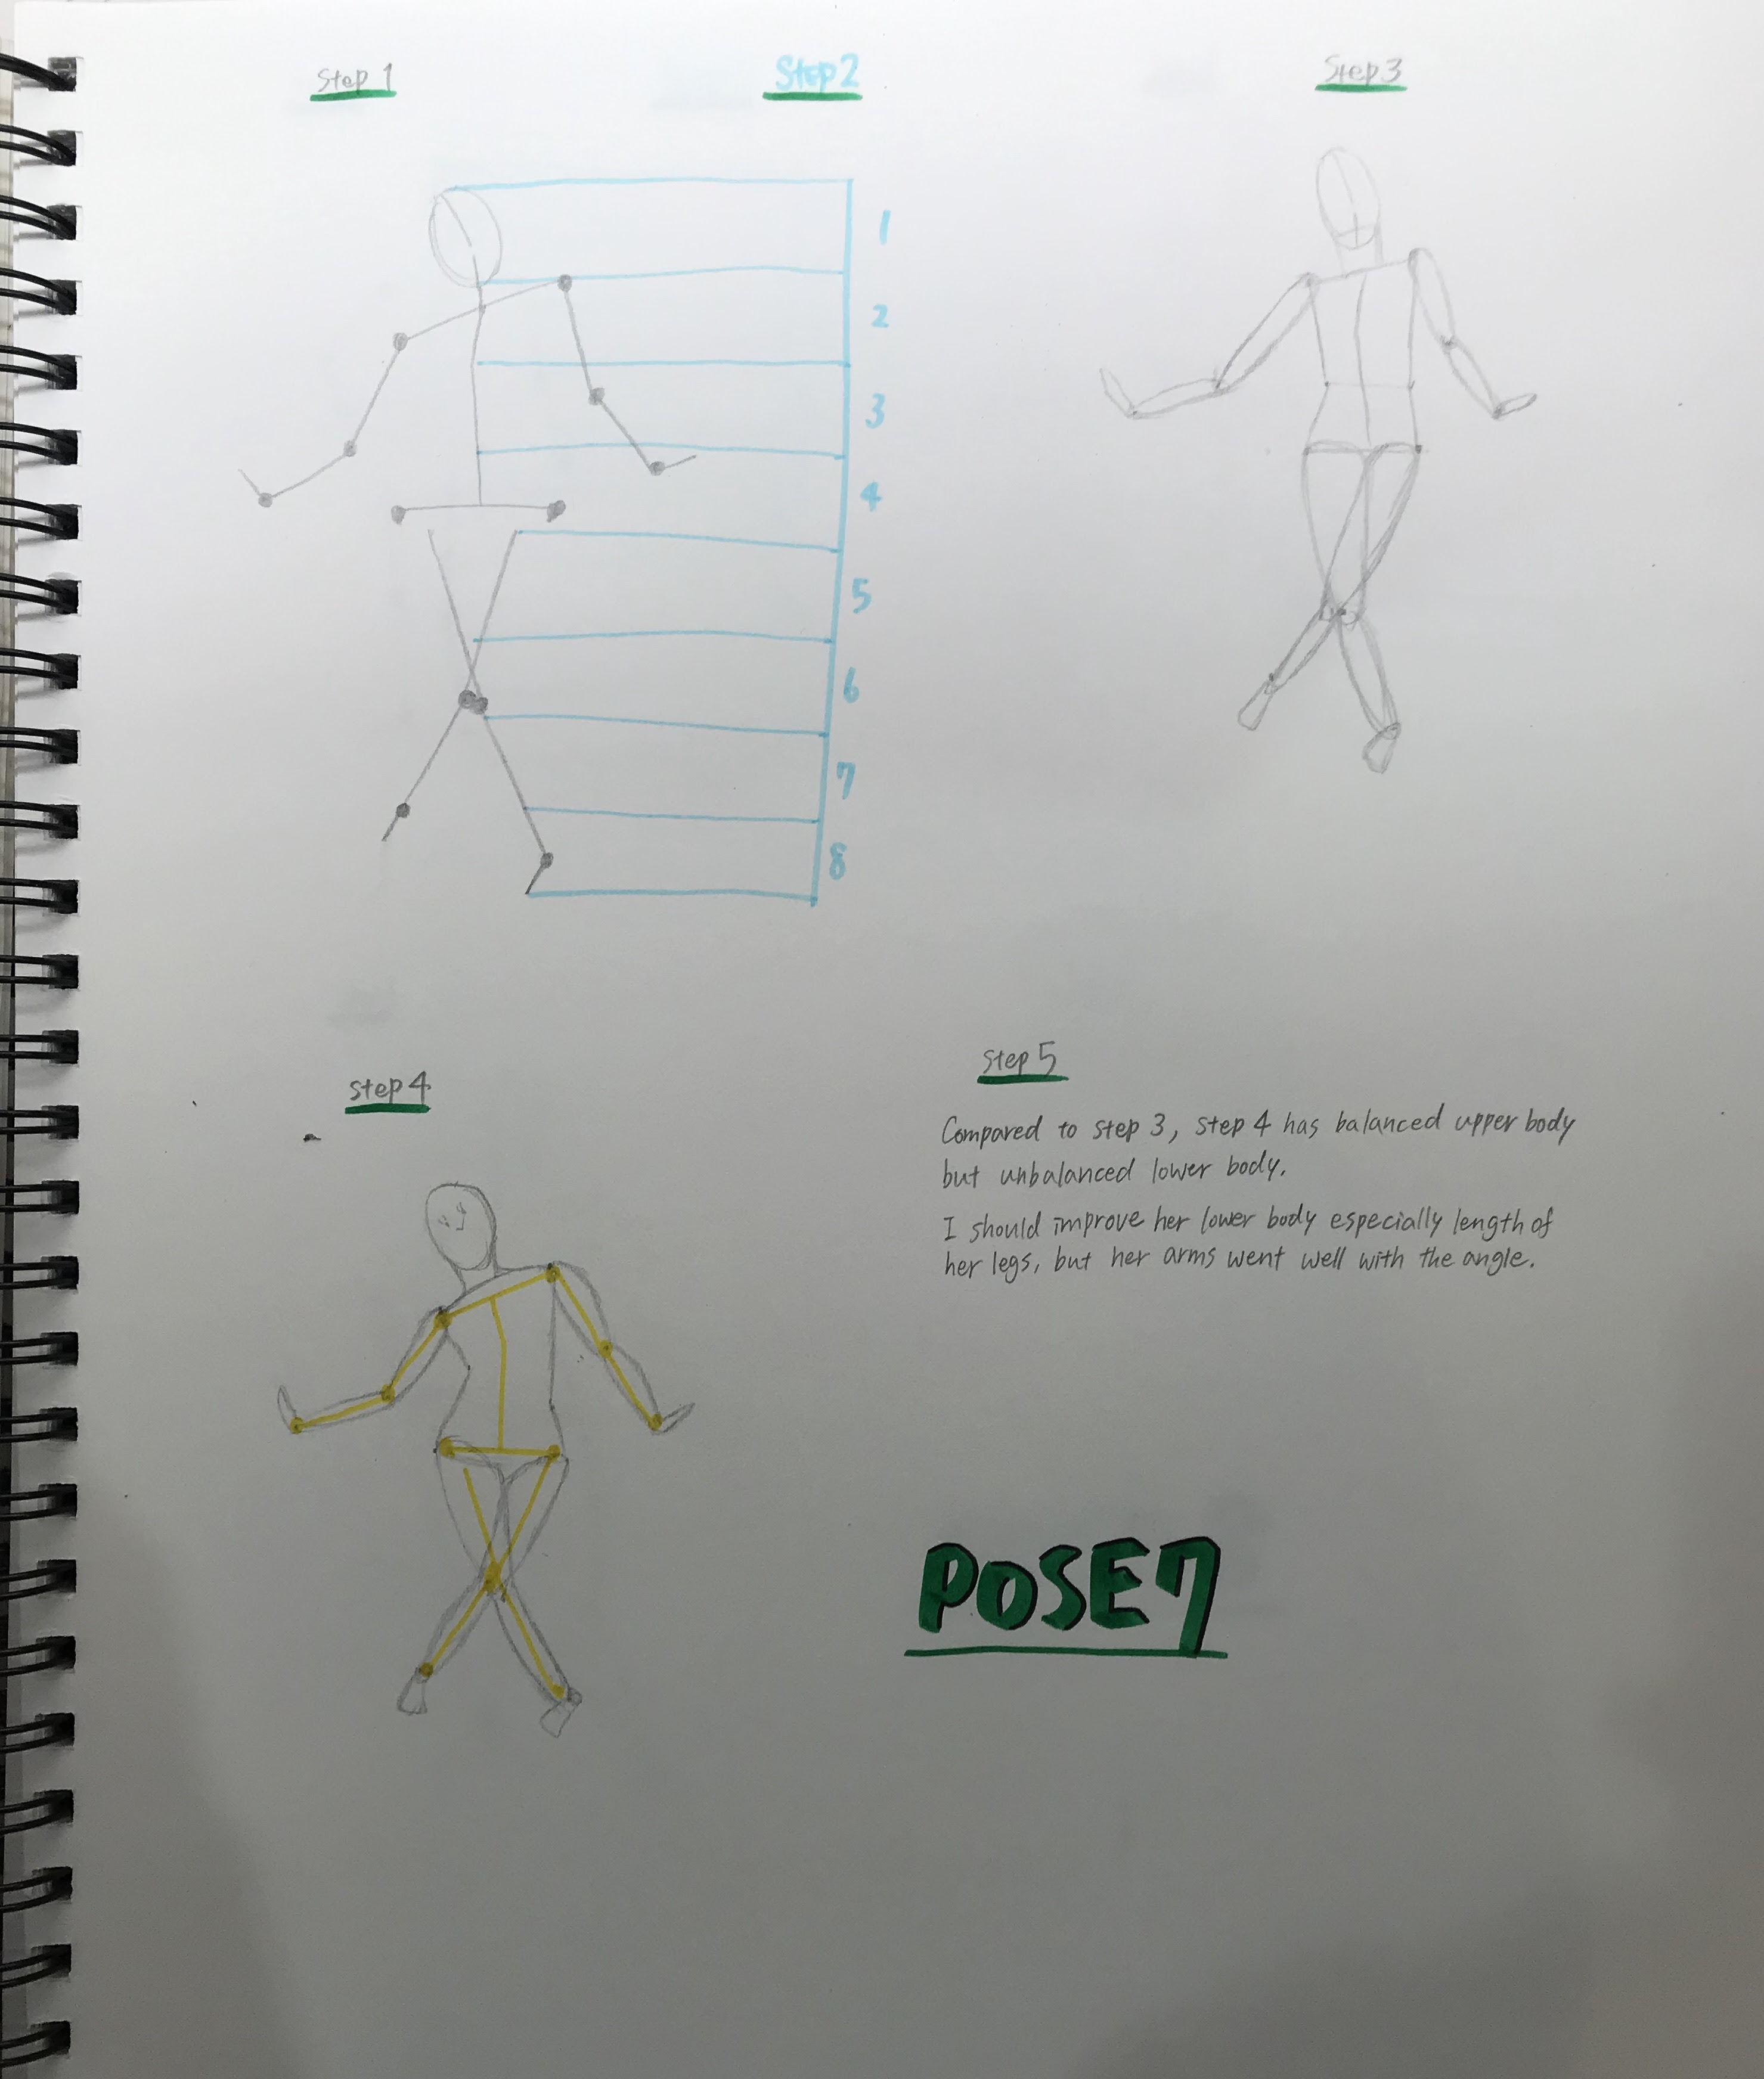 Step 1
Step 2
Step 3
1
2
3
4
5
6
7
8
Step 4
Step 5
Compared to step 3, step 4 has balanced upper body
but unbalanced lower body.
I should improve her lower body especially length of
her legs, but her arms went well with the angle.
POSE7